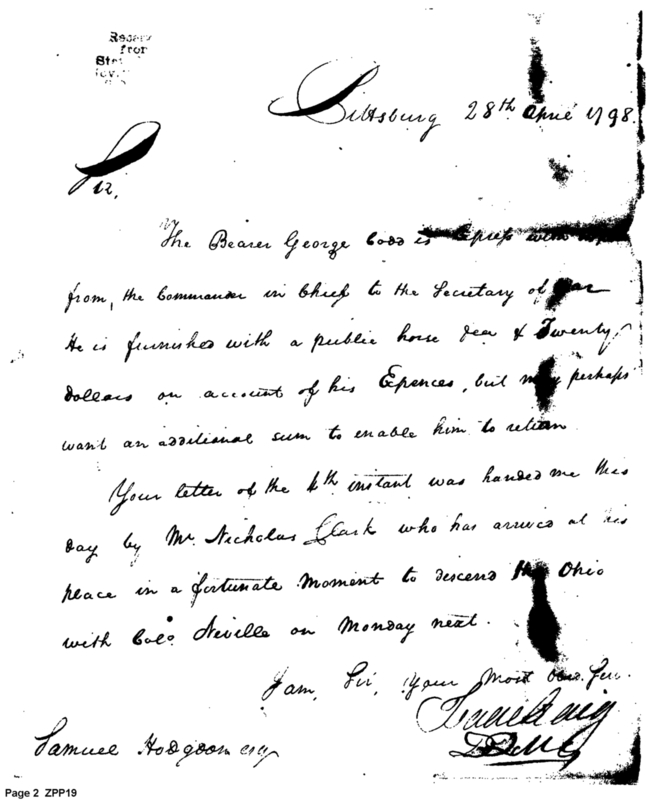 Pittsburg 28th April 1798.
Sir,
The Bearer George Codd is Express with
from, the Commander in Chief to the Secretary of War
He is furnished with a public horse & Twenty
dollars on account of his Epences, but may perhaps
want an additional sum to enable him to return
Your letter of the 4th instant was handed me this
day by Mr. Nicholas Clark who has arrived at his
place in a fortunate Moment to descend the Ohio
with Colo. Neville on Monday next.
I am, Sir, Your Most Obd. Ser.
Isaac Craig
Samuel Hodgdon esqr
Page 2 ZPP19